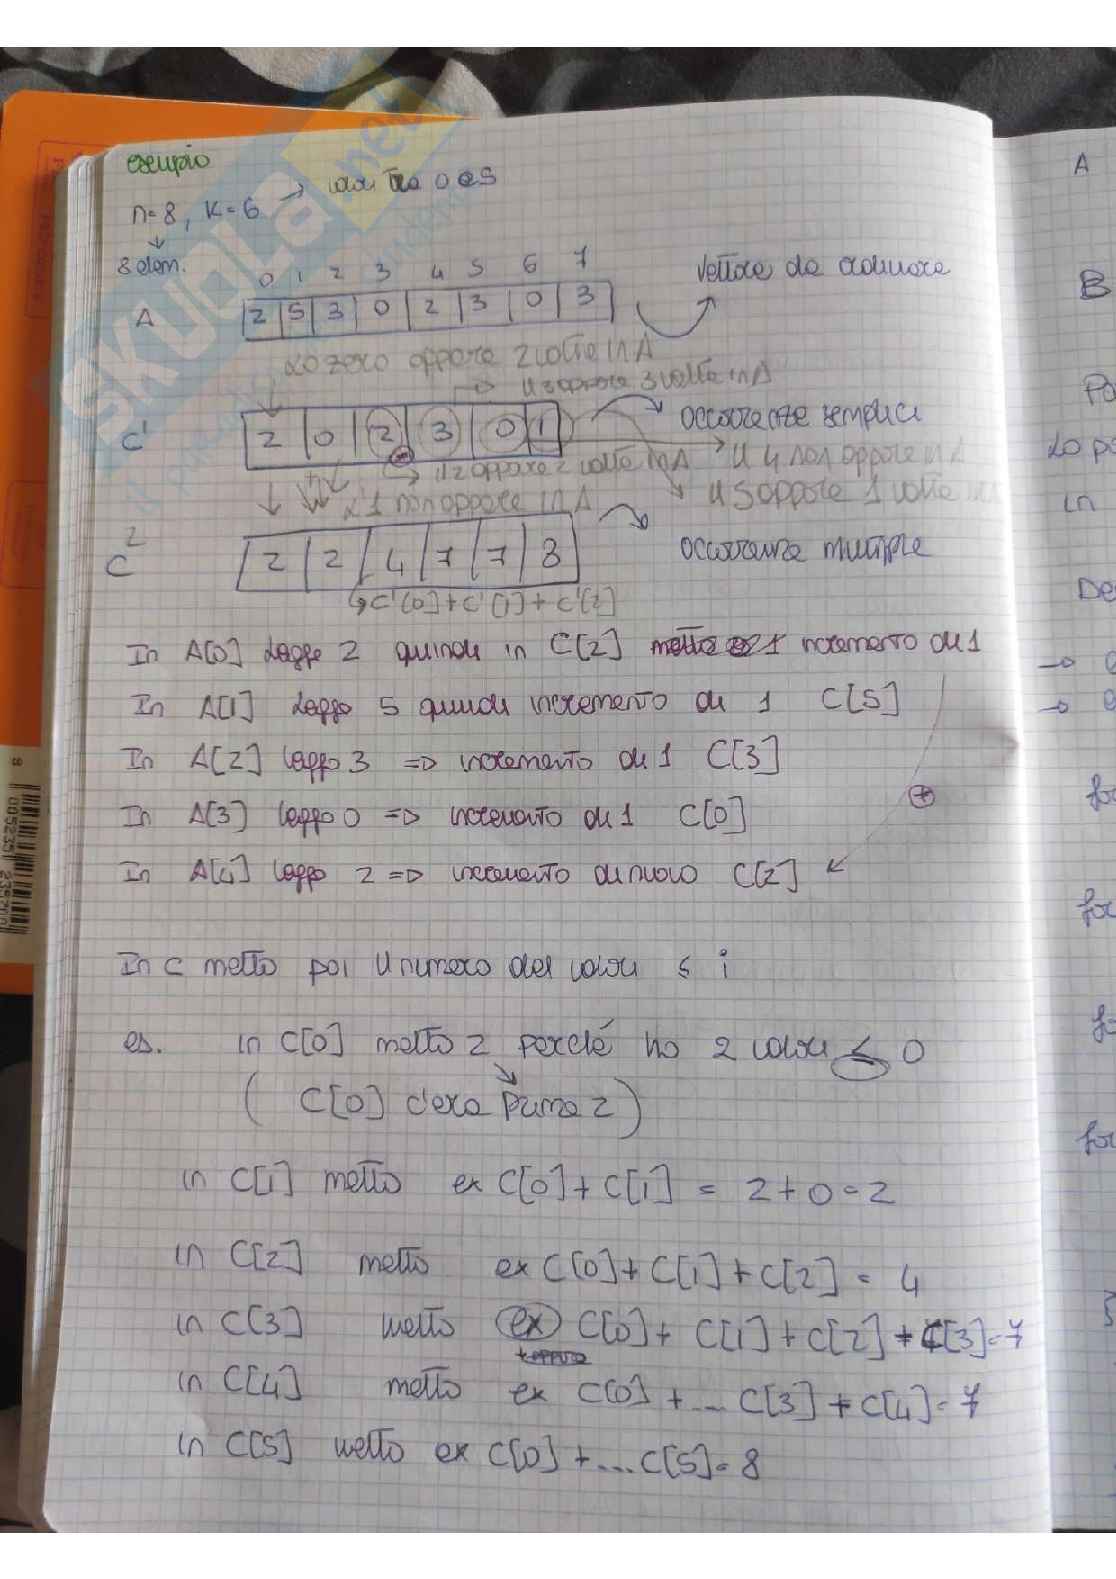 esempio
n=8, K=6 → valori tra 0 e 5
8 elem.
0 1 2 3 4 5 6 7
A 2 5 3 0 2 3 0 3
Vettore da ordinare
Lo zero appare 2 volte in A
il 3 appare 3 volte in A
C¹ 2 0 2 3 0 1
occorrenze semplici
il 2 appare 2 volte in A
il 4 non appare in A
L'1 non appare in A
il 5 appare 1 volta in A
C² 2 2 4 7 7 8
occorrenze multiple
C¹[0]+C¹[1]+C¹[2]
In A[0] leggo 2 quindi in C[2] metto 1 incremento di 1
In A[1] leggo 5 quindi incremento di 1 C[5]
In A[2] leggo 3 => incremento di 1 C[3]
In A[3] leggo 0 => incremento di 1 C[0]
In A[4] leggo 2 => incremento di nuovo C[2]
In C metto poi il numero dei valori ≤ i
es. in C[0] metto 2 perché ho 2 valori ≤ 0
( C[0] c'era prima 2 )
in C[1] metto ex C[0]+C[1] = 2+0=2
in C[2] metto ex C[0]+C[1]+C[2] = 4
in C[3] metto ex C[0]+ C[1]+C[2]+C[3]=7
in C[4] metto ex C[0] +... C[3]+C[4]=7
in C[5] metto ex C[0] +...C[5]=8
A
B
Lo
in
De
SKUOLA.net